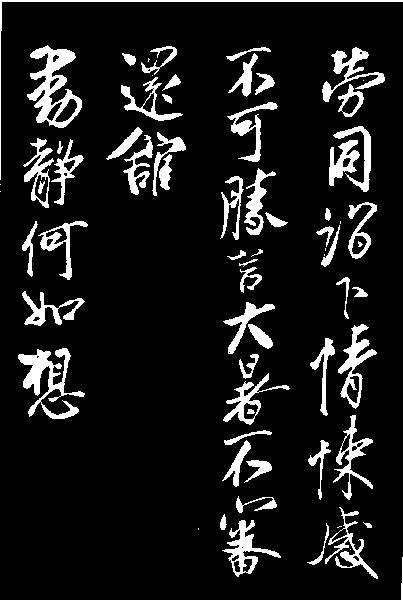 劳同诣下情悚感
不可勝言大暑不審
還舘
動靜何如想